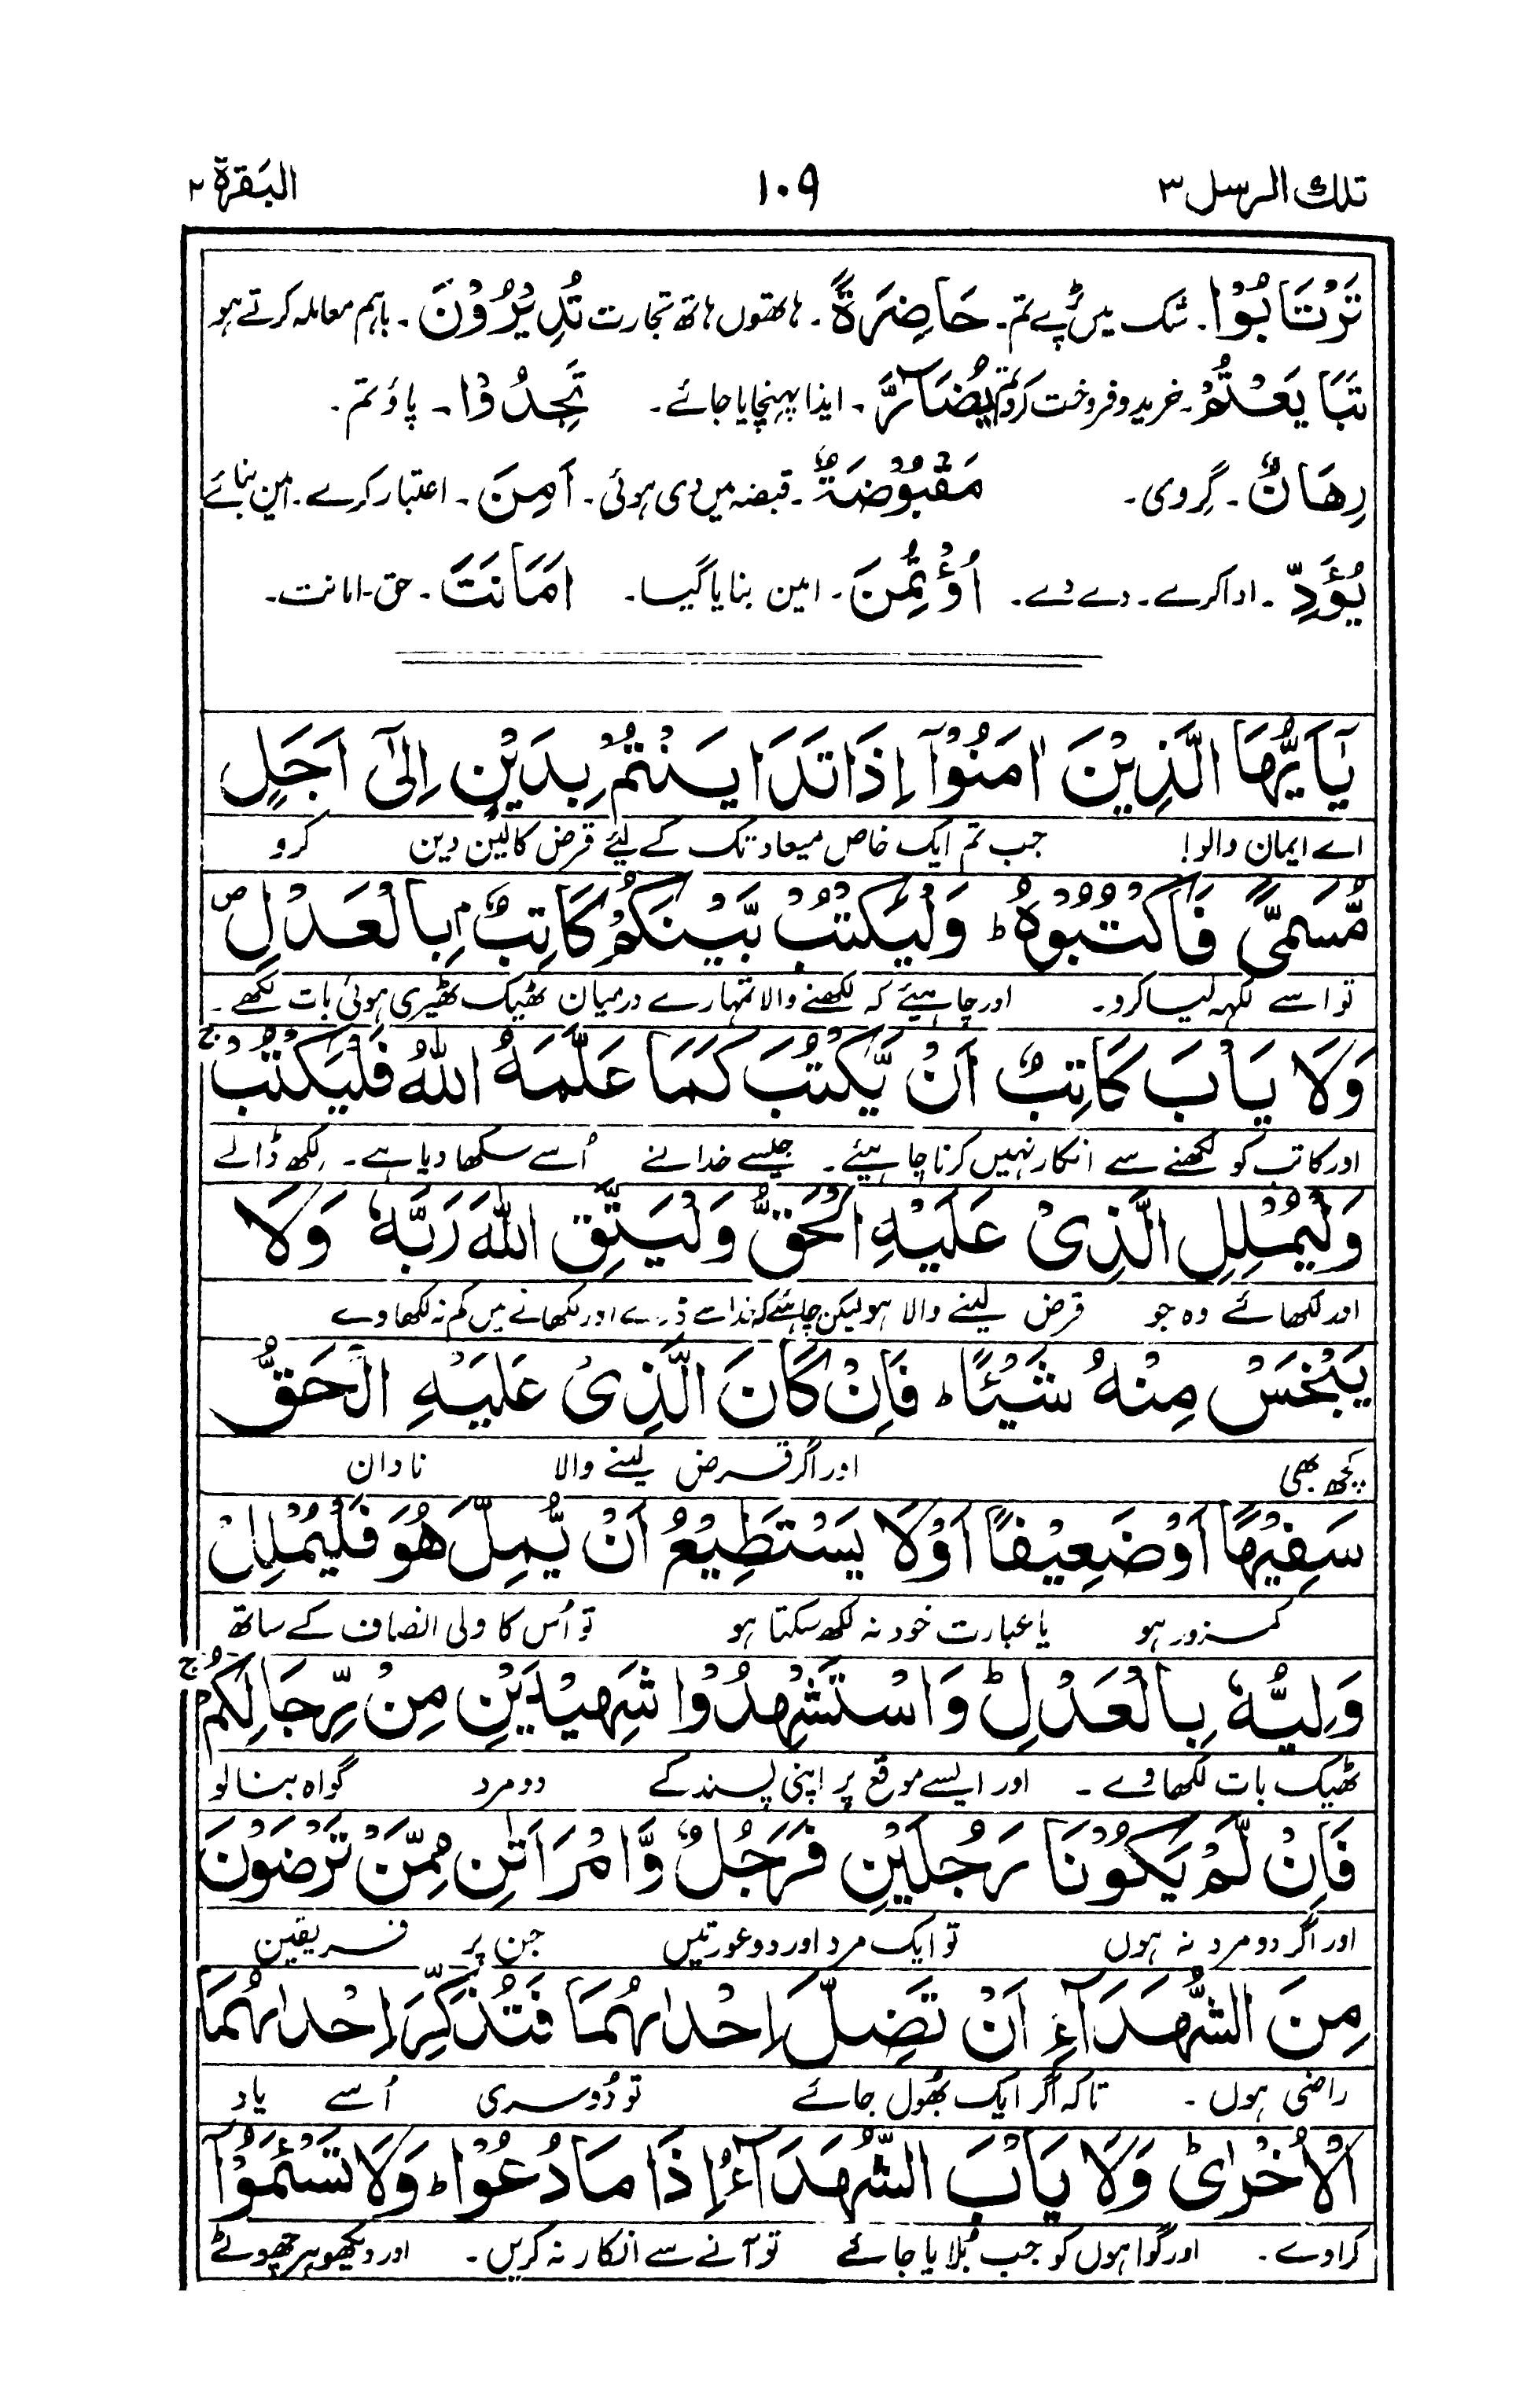 تلك الرسل ٣ ١٠٩ البقرة ٢
تَرْتَابُوْا۔ شک میں پڑے تم۔ حَاضِرَةً۔ ہاتھوں ہاتھ تجارت تُدِيْرُوْنَ۔ باہم معاملہ کرتے ہو
تَبَايَعْتُمْ۔ خرید و فروخت کرو تم يُضَآرَّ۔ ایذا پہنچایا جائے۔ تَجِدُوْا۔ پاؤ تم۔
رِهَانٌ۔ گِروی۔ مَقْبُوْضَةٌ۔ قبضہ میں دی ہوئی۔ اَمِنَ۔ اعتبار کرے۔ امین بنائے
يُؤَدِّ۔ ادا کرے۔ دے دے۔ اُؤْتُمِنَ۔ امین بنایا گیا۔ اَمَانَتَ۔ حق۔ امانت۔
يٰٓاَيُّهَا الَّذِيْنَ اٰمَنُوْٓا اِذَا تَدَايَنْتُمْ بِدَيْنٍ اِلٰٓى اَجَلٍ
اے ایمان والو! جب تم ایک خاص میعاد تک کے لئے قرض کا لین دین کرو
مُّسَمًّى فَاكْتُبُوْهُ ؕ وَلْيَكْتُبْ بَّيْنَكُمْ كَاتِبٌۢ بِالْعَدْلِ ۪
تو اسے لکھ لیا کرو۔ اور چاہیئے کہ لکھنے والا تمہارے درمیان ٹھیک ٹھیری ہوئی بات لکھے۔
وَلَا يَاْبَ كَاتِبٌ اَنْ يَّكْتُبَ كَمَا عَلَّمَهُ اللّٰهُ فَلْيَكْتُبْ ۚ
اور کاتب کو لکھنے سے انکار نہیں کرنا چاہیئے۔ جیسے خدا نے اُسے سکھا دیا ہے۔ لکھ ڈالے
وَلْيُمْلِلِ الَّذِىْ عَلَيْهِ الْحَقُّ وَلْيَتَّقِ اللّٰهَ رَبَّهٗ وَلَا
اور لکھائے وہ جو قرض لینے والا ہو لیکن چاہئے کہ خدا سے ڈرے اور لکھانے میں کم نہ لکھاوے
يَبْخَسْ مِنْهُ شَيْئًا ؕ فَاِنْ كَانَ الَّذِىْ عَلَيْهِ الْحَقُّ
کچھ بھی اور اگر قرض لینے والا نادان
سَفِيْهًا اَوْ ضَعِيْفًا اَوْ لَا يَسْتَطِيْعُ اَنْ يُّمِلَّ هُوَ فَلْيُمْلِلْ
کمزور ہو یا عبارت خود نہ لکھ سکتا ہو تو اُس کا ولی انصاف کے ساتھ
وَلِيُّهٗ بِالْعَدْلِ ؕ وَاسْتَشْهِدُوْا شَهِيْدَيْنِ مِنْ رِّجَالِكُمْ ۚ
ٹھیک بات لکھاوے۔ اور ایسے موقع پر اپنی پسند کے دو مرد گواہ بنا لو
فَاِنْ لَّمْ يَكُوْنَا رَجُلَيْنِ فَرَجُلٌ وَّامْرَاَتٰنِ مِمَّنْ تَرْضَوْنَ
اور اگر دو مرد نہ ہوں تو ایک مرد اور دو عورتیں جن پر فریقین
مِنَ الشُّهَدَآءِ اَنْ تَضِلَّ اِحْدٰىهُمَا فَتُذَكِّرَ اِحْدٰىهُمَا
راضی ہوں۔ تاکہ اگر ایک بھُول جائے تو دُوسری اُسے یاد
الْاُخْرٰى ؕ وَلَا يَاْبَ الشُّهَدَآءُ اِذَا مَا دُعُوْا ؕ وَلَا تَسْـَٔمُوْٓا
کراوے۔ اور گواہوں کو جب بُلایا جائے تو آنے سے انکار نہ کریں۔ اور دیکھو ہر چھوٹے